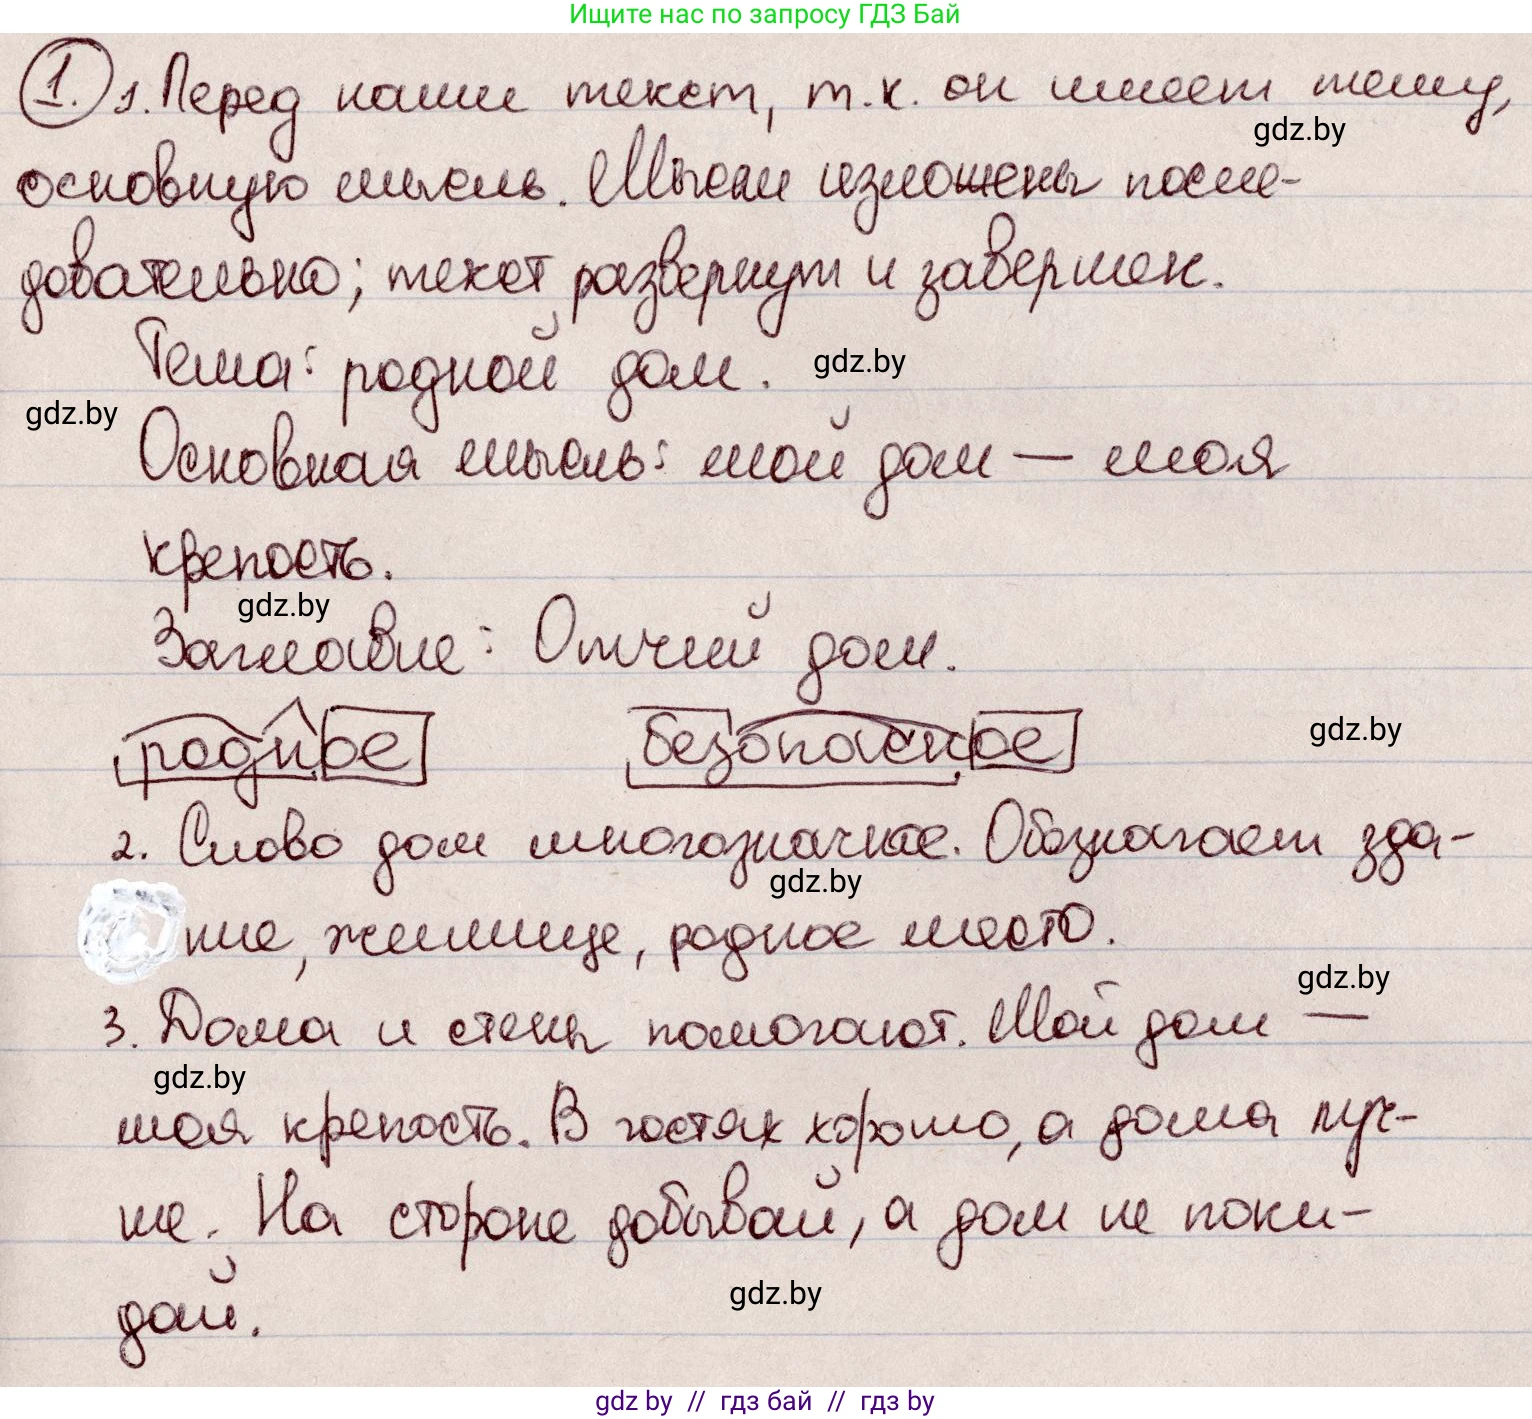 Ищите нас по запросу ГДЗ Бай
1. 1. Перед нами текст, т.к. он имеет тему,
gdz.by
основную мысль. Мысли изложены после-
довательно; текст развернут и завершен.
Тема: родной дом.
gdz.by
gdz.by
Основная мысль: мой дом — моя
крепость.
gdz.by
Заглавие: Отчий дом.
родное безопасное
gdz.by
2. Слово дом многозначное. Обозначает зда-
gdz.by
ние, жилище, родное место.
gdz.by
3. Дома и стены помогают. Мой дом —
gdz.by
моя крепость. В гостях хорошо, а дома луч-
ше. На стороне добывай, а дом не поки-
gdz.by
дай.
gdz by // гдз бай // гдз by